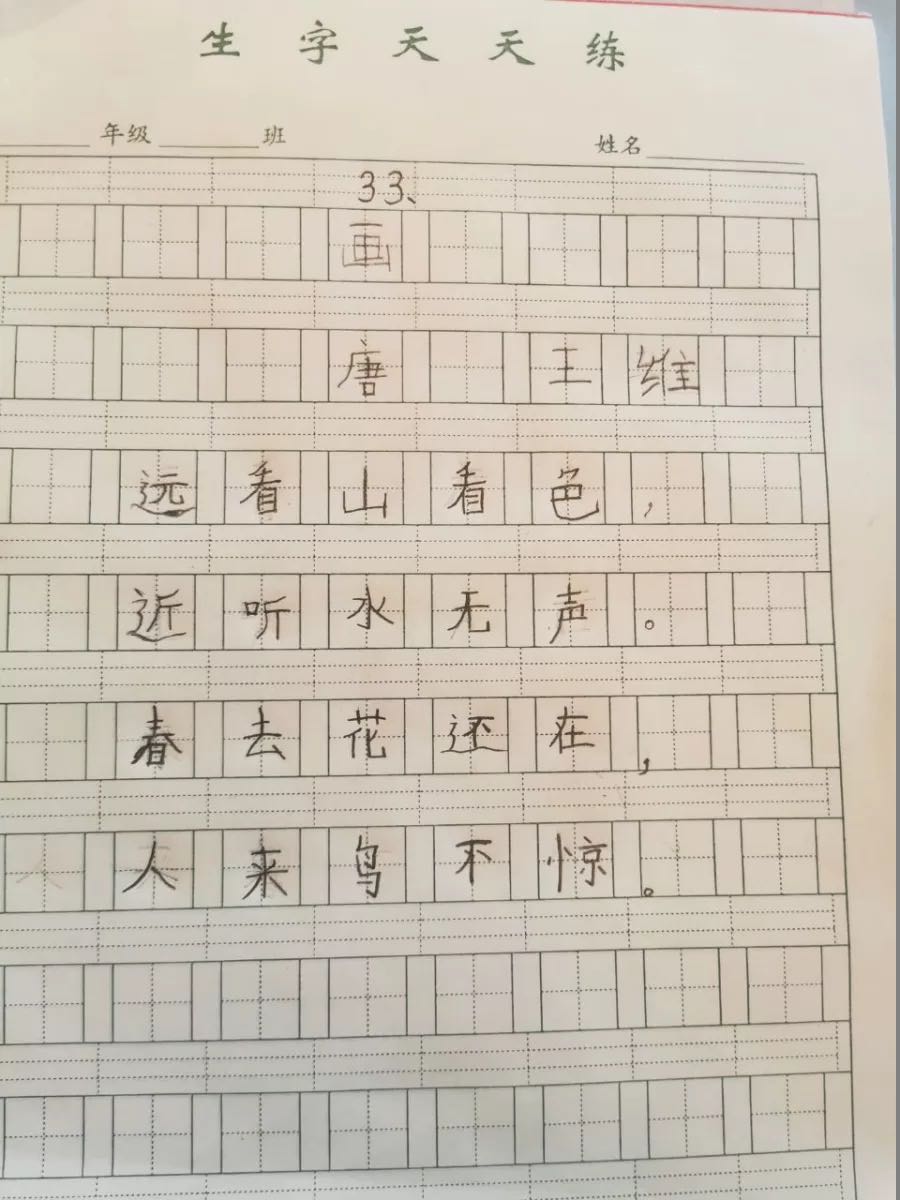 生字天天练
年级 班 姓名
33、
画
唐 王维
远看山看色，
近听水无声。
春去花还在，
人来鸟不惊。